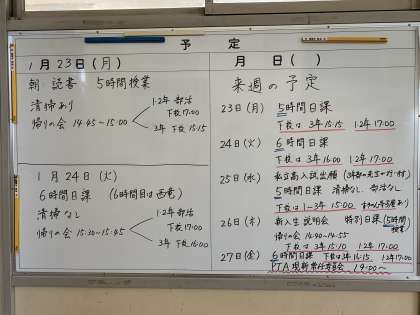 予定
1月23日(月)
朝・読書 5時間授業
清掃あり
帰りの会 14:45~15:00
1·2年 部活
下校 17:00
3年 下校 15:15
1月24日(火)
6時間日課 (6時間目は西竜)
清掃なし
帰りの会 15:30~15:45
1·2年 部活
下校 17:00
3年 下校 16:00
月 日( )
来週の予定
23日(月) 5時間日課
下校は 3年 15:15 1·2年 17:00
24日(火) 6時間日課
下校は 3年 16:00 1·2年 17:00
25日(水) 私立高入試出願
5時間日課 清掃なし、部活なし
下校は 1~3年 15:00
26日(木) 新入生説明会 特別日課(5時間授業)
帰りの会 14:40~14:55
下校は 3年 15:10 1·2年 17:00
27日(金) 6時間日課 下校は 3年 16:15 1·2年 17:00
PTA 19:00~